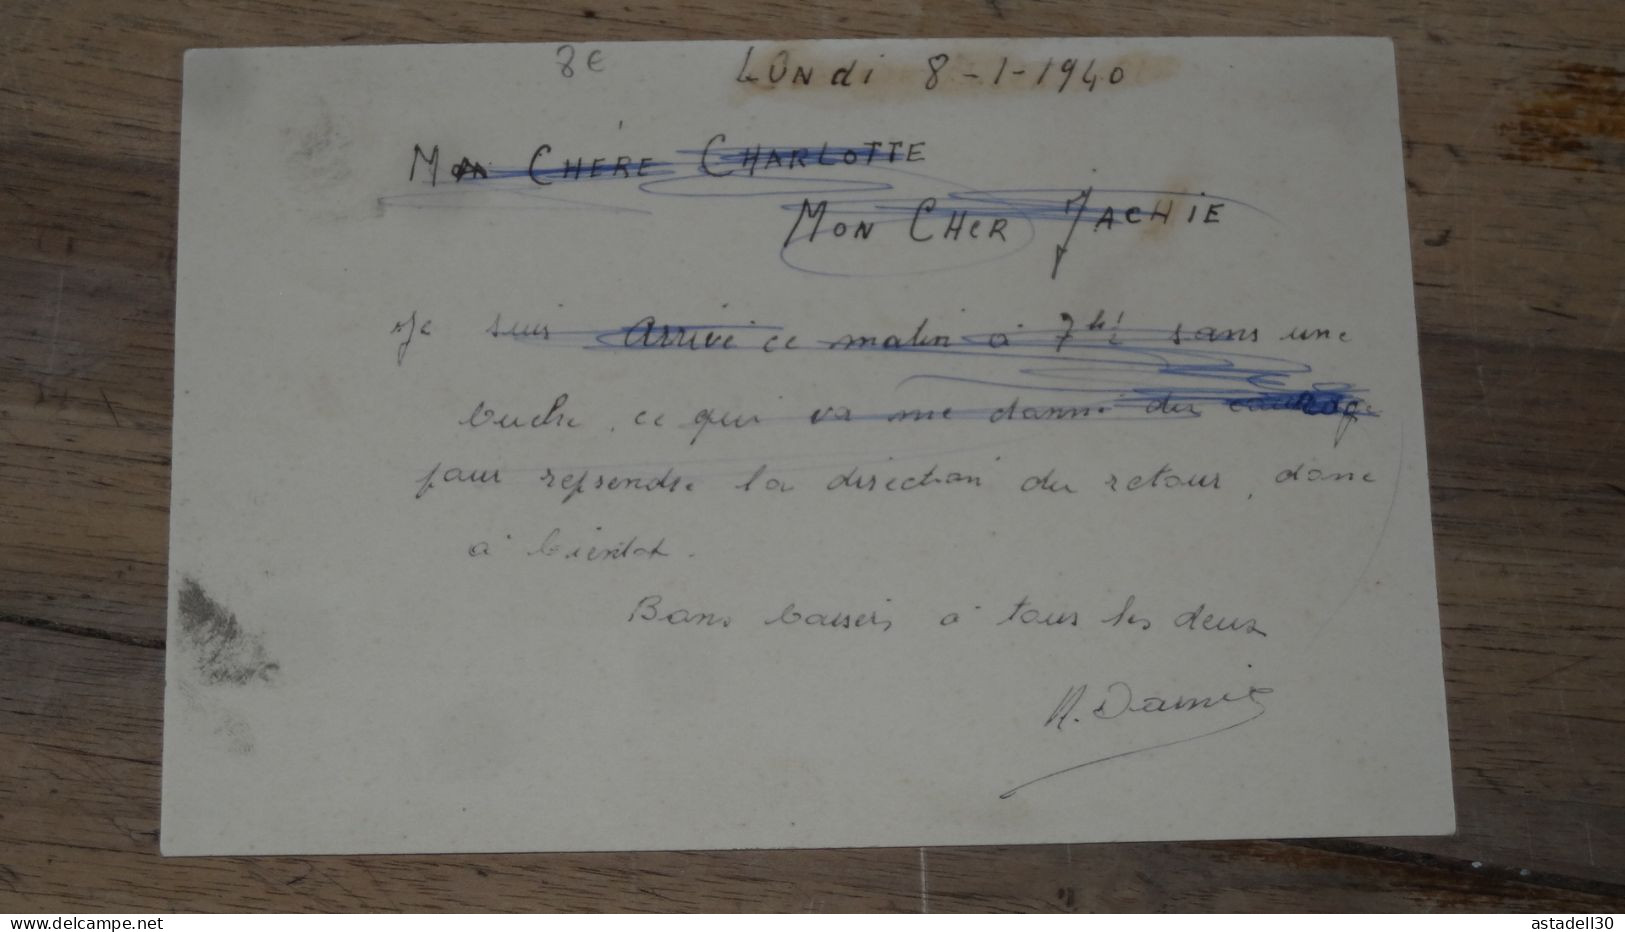 8€
LUNdi 8-1-1940
Mon CHÉRE CHARLOTTE
MON CHER JACHIE
Je suis Arrivé ce matin à 7h½ sans une
buche, ce qui va me donné du courage
pour reprendre la direction du retour, donc
à bientot.
Bons baisers à tous les deux
www.delcampe.net
astadell30